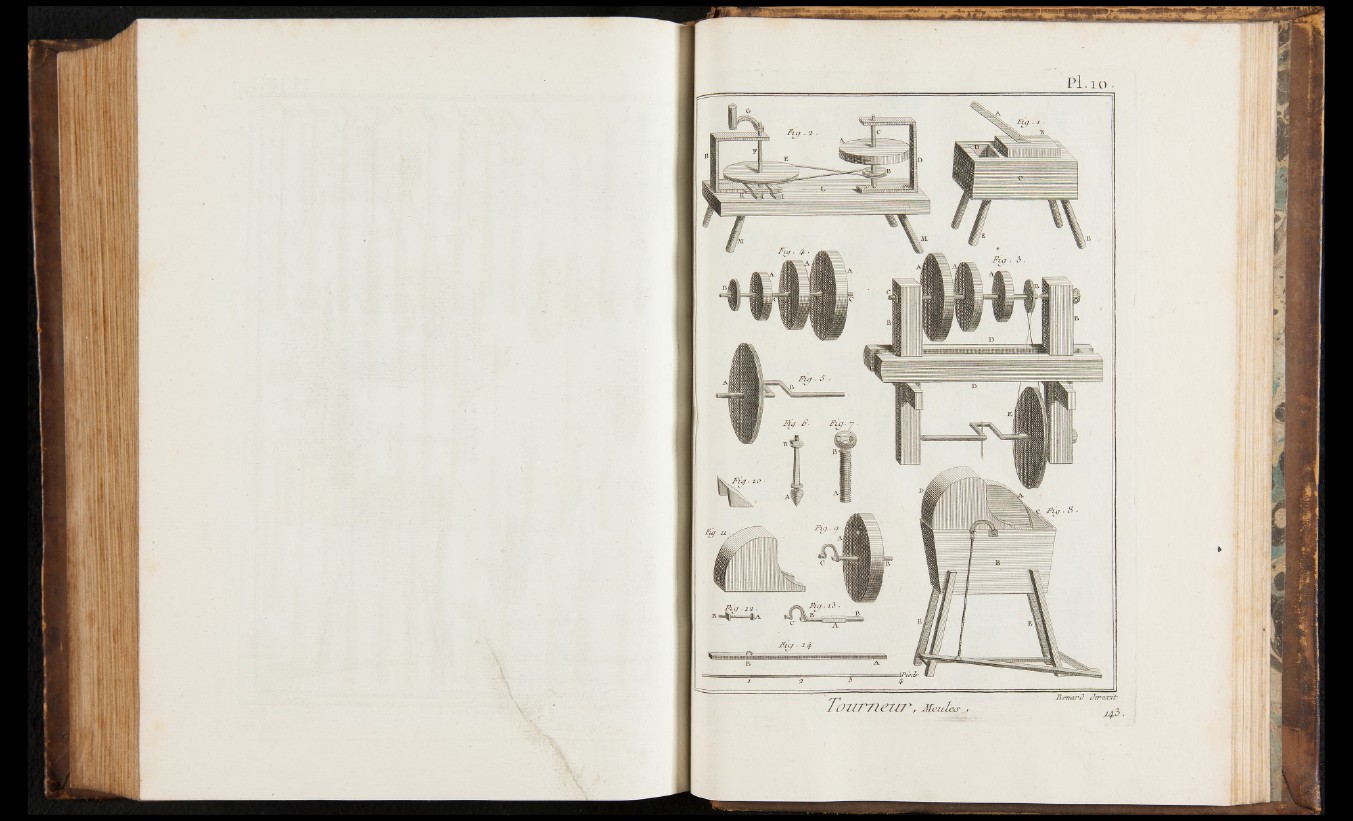 Pl. 10.
G
Fig. 2.
A
C
Fig. 1
A
B
H
F
E
D
B
D
C
L
M
M
E
E
Fig. 4.
A
A
A
B
Fig. 3.
A
A
A
B
C
B
B
D
D
E
A
B
Fig. 5.
Fig. 6.
Fig. 7.
B
B
A
A
Fig. 10.
D
A
C
Fig. 8.
B
E
E
Fig. 11
Fig. 9
A
C
B
Fig. 12.
B
A
Fig. 13.
B
B
C
A
Fig. 14
B
A
1 2 3 4 Pieds
Benard Direxit
Tourneur, Meules.
143.